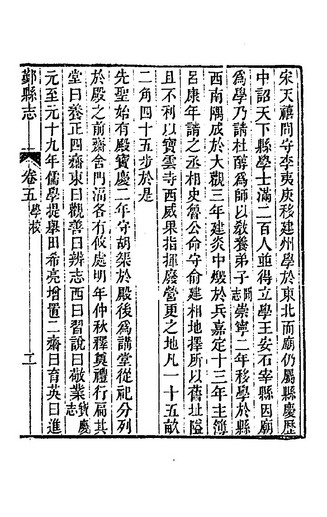 宋天禧間守李夷庚移建州學於東北而廟仍屬縣慶歷
中詔天下縣學士滿二百人並得立學王安石宰縣因廟
為學乃請杜醇為師以敎養弟子崇寧二年移學於縣
西南隅成於大觀三年建炎中燬於兵嘉定十三年主簿
呂康年請之丞相史魯公命守俞建相地擇所以舊址隘
且不利以寶雲寺西威果指揮廢營更之地凡一十五畝
二角四十五步於是
先聖始有殿寶慶二年守胡榘於殿後為講堂從祀分列
於殿之前齋舍門湢各有攸處明年仲秋釋奠禮行扁其
堂曰養正四齋東曰觀善曰辨志西曰習說曰敬業寶慶志
元至元十九年儒學提舉田希亮增置二齋曰育英曰進
鄞縣志
卷五 學校
二